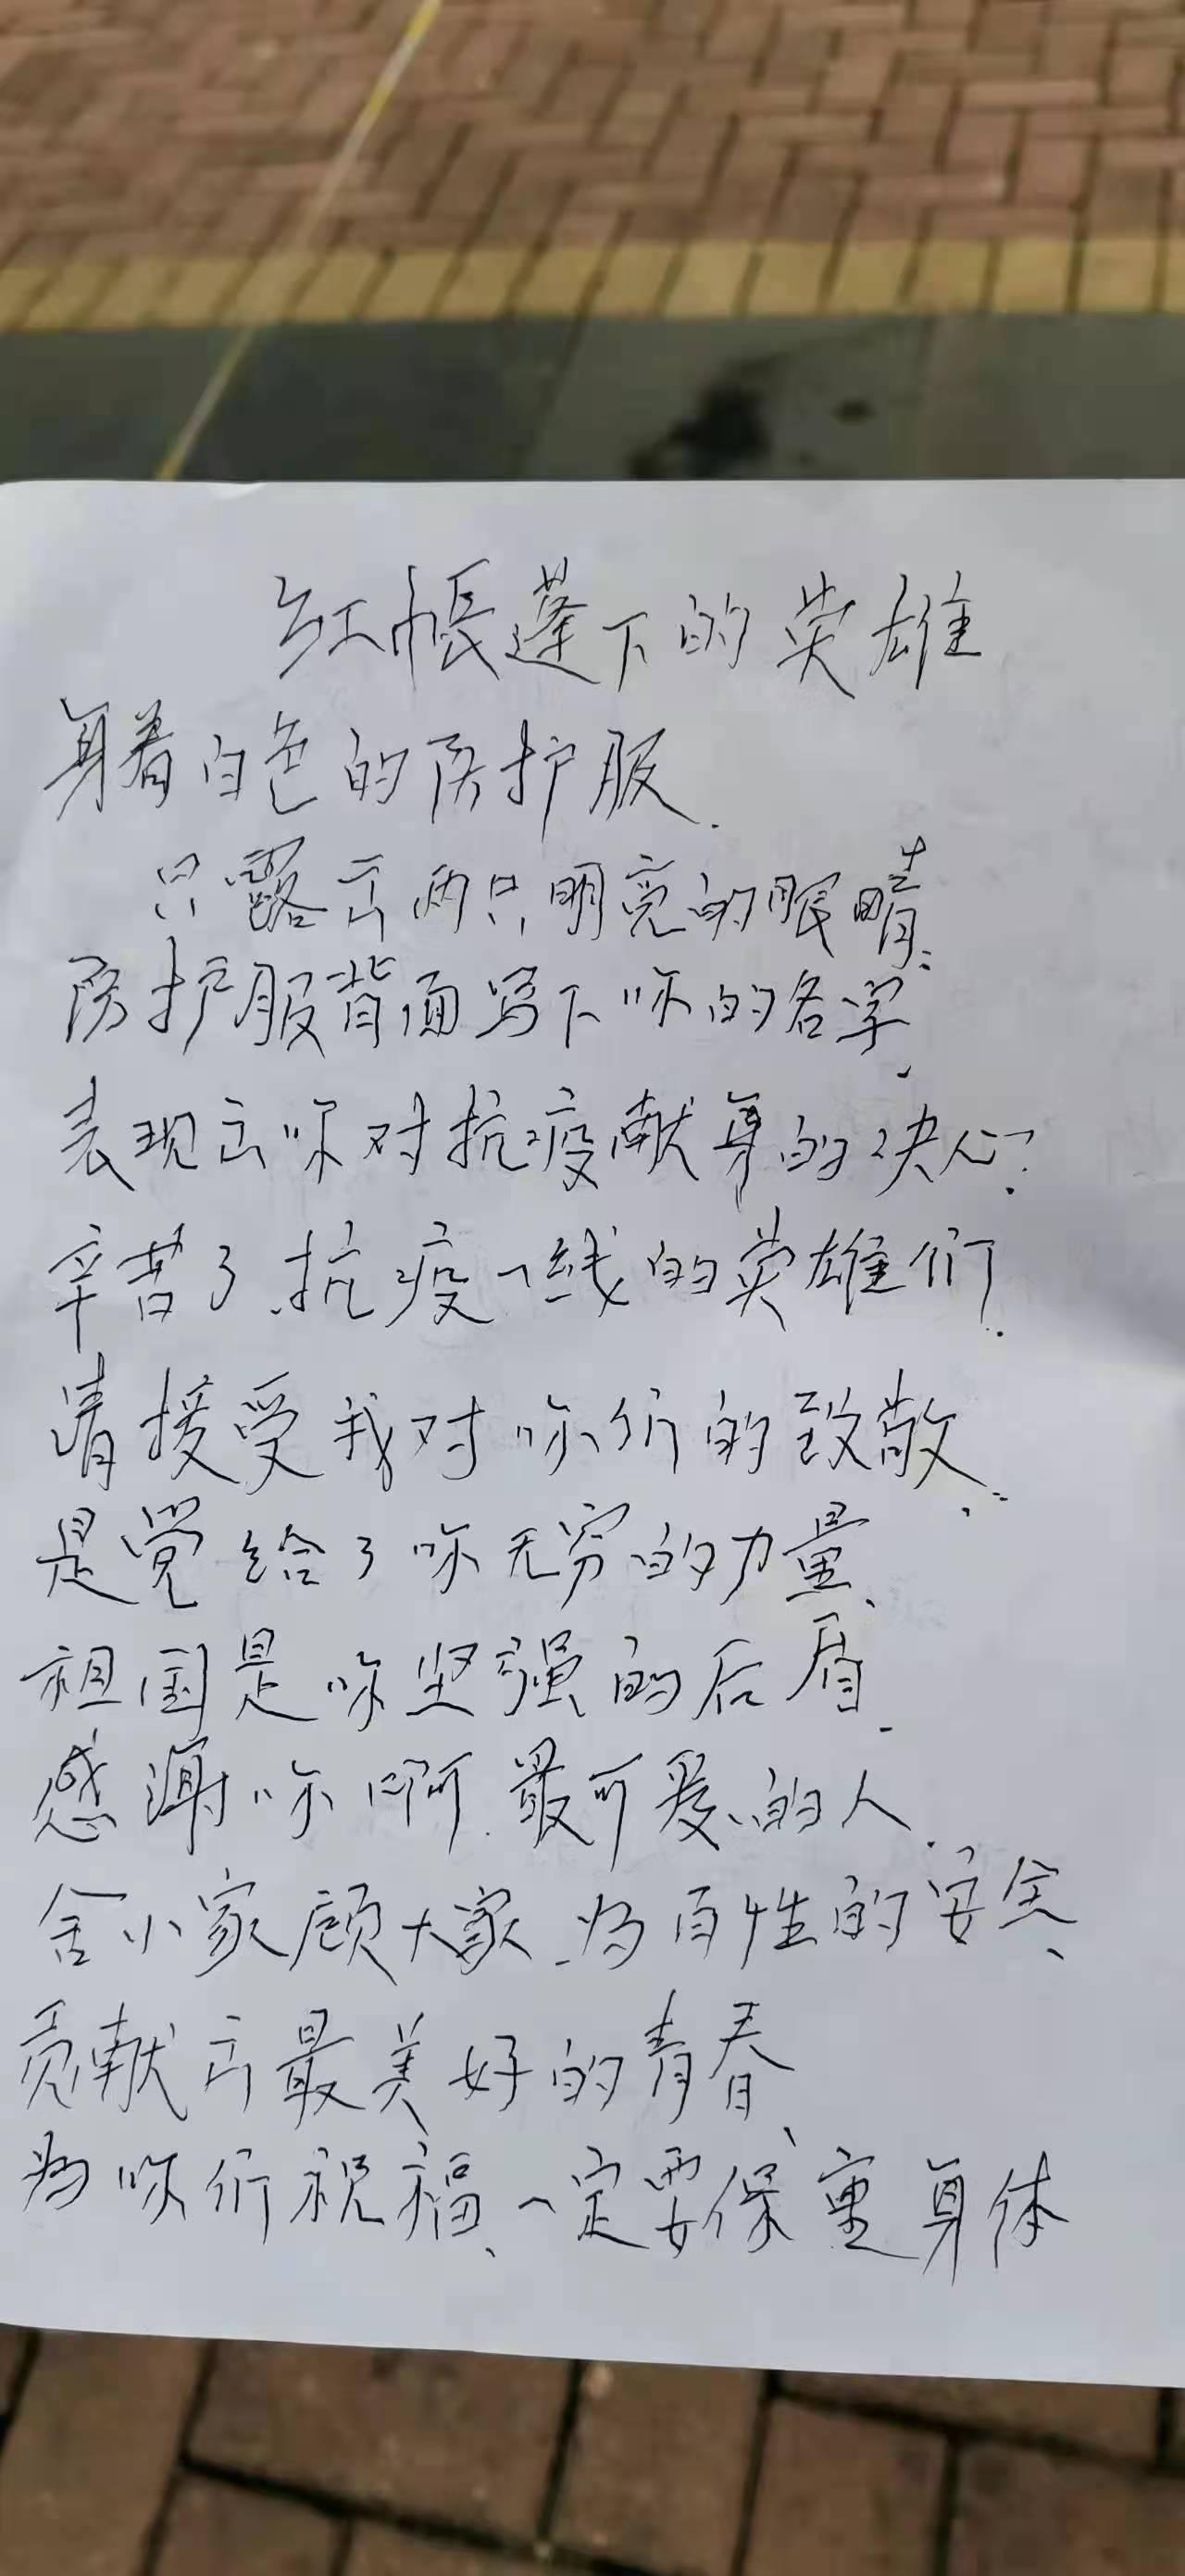 红帳蓬下的英雄
身着白色的防护服.
只露出两只明亮的眼睛.
防护服背面写下你的名字,
表现出你对抗疫献身的决心.
辛苦了.抗疫一线的英雄们.
请接受我对你们的致敬.
是党给了你无穷的力量、
祖国是你坚强的后盾.
感谢你啊.最可爱的人.
舍小家顾大家.为百姓的安全、
贡献出最美好的青春、
为你们祝福、一定要保重身体